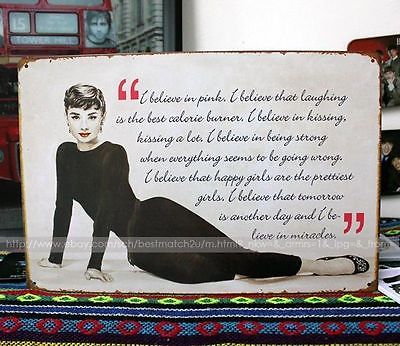 15
TOWER
“I believe in pink. I believe that laughing
is the best calorie burner. I believe in kissing,
kissing a lot. I believe in being strong
when everything seems to be going wrong.
I believe that happy girls are the prettiest
girls. I believe that tomorrow
is another day and I be-
lieve in miracles.”
http://www.ebay.com/sch/bestmatch2u/m.html?_nkw=&_armrs=1&_ipg=&_from